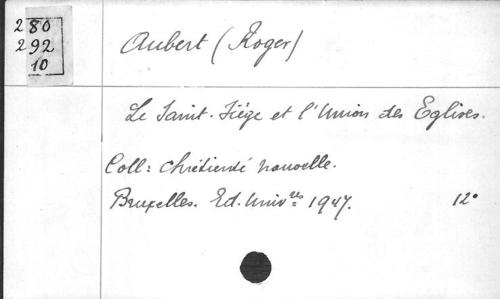 280
292
10
Aubert (Roger)
Le Saint-Siège et l'Union des Eglises.
Coll: Chrétienté nouvelle.
Bruxelles. Ed. Univ.res 1947. 12°